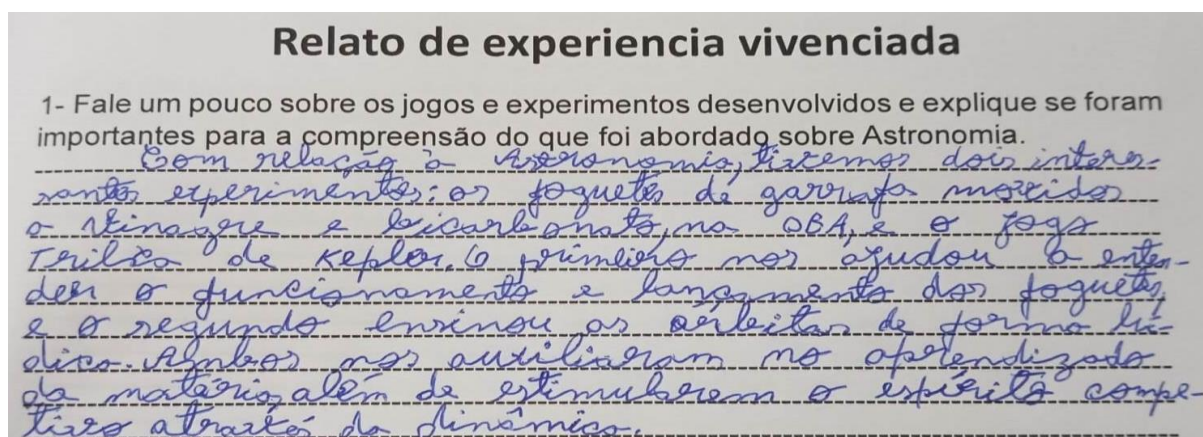 Relato de experiencia vivenciada
1- Fale um pouco sobre os jogos e experimentos desenvolvidos e explique se foram
importantes para a compreensão do que foi abordado sobre Astronomia.
Com relação à Astronomia, tivemos dois interes-
santes experimentos: os foguetes de garrafa movidos
a vinagre e bicarbonato, na OBA, e o jogo
Trilha de Kepler. O primeiro nos ajudou a enten-
der o funcionamento e lançamento dos foguetes,
e o segundo ensinou as órbitas de forma lú-
dica. Ambos nos auxiliaram no aprendizado
da matéria, além de estimularem o espírito compe-
titivo através da dinâmica.